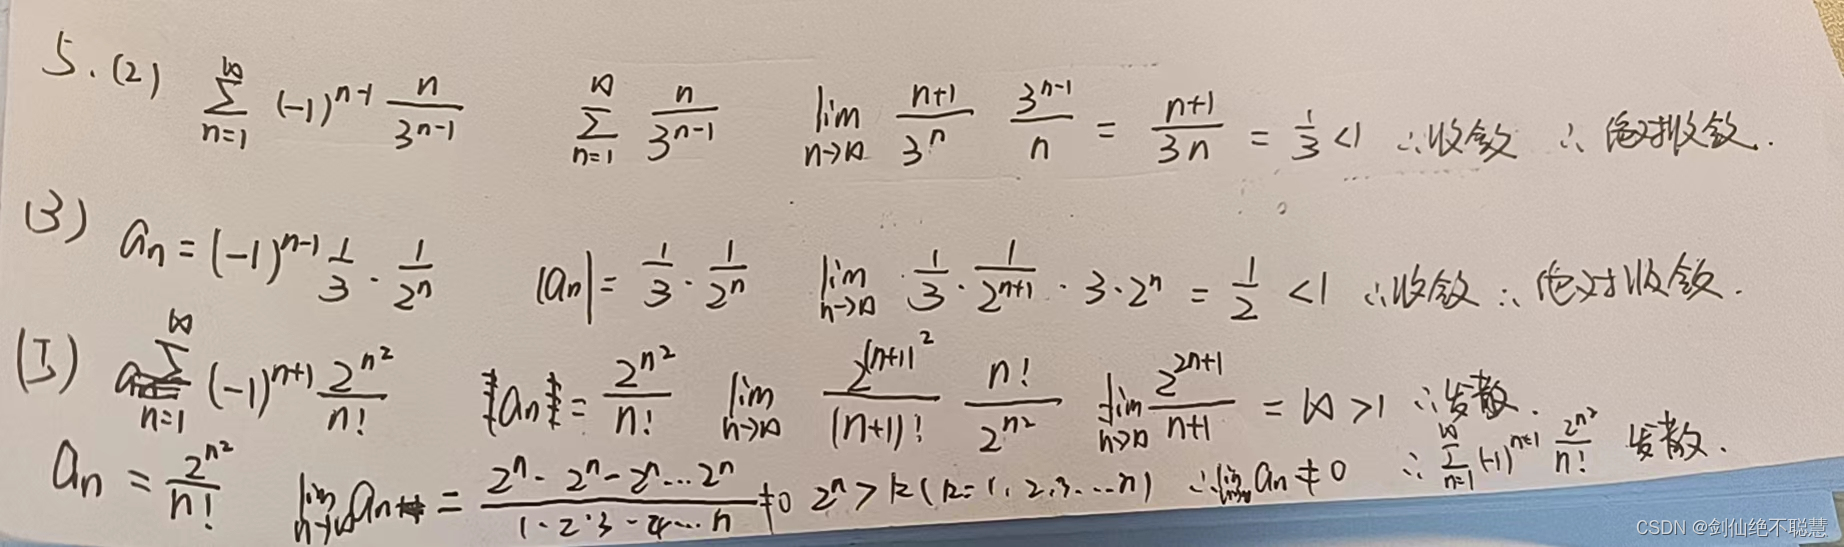 5.(2) \sum_{n=1}^{\infty} (-1)^{n-1} \frac{n}{3^{n-1}} \sum_{n=1}^{\infty} \frac{n}{3^{n-1}} \lim_{n→∞} \frac{n+1}{3^n} \frac{3^{n-1}}{n} = \frac{n+1}{3n} = \frac{1}{3} <1 ∴收敛 ∴绝对收敛.
(3) a_n = (-1)^{n-1} \frac{1}{3} · \frac{1}{2^n} |a_n| = \frac{1}{3} · \frac{1}{2^n} \lim_{n→∞} · \frac{1}{3} · \frac{1}{2^{n+1}} · 3 · 2^n = \frac{1}{2} <1 ∴收敛 ∴绝对收敛.
(5) \sum_{n=1}^{\infty} (-1)^{n+1} \frac{2^{n^2}}{n!} a_n = \frac{2^{n^2}}{n!} \lim_{n→∞} \frac{2^{(n+1)^2}}{(n+1)!} \frac{n!}{2^{n^2}} \lim_{n→∞} \frac{2^{2n+1}}{n+1} = ∞ >1 ∴发散.
a_n = \frac{2^{n^2}}{n!} \lim_{n→∞} a_n = \frac{2^n · 2^n · 2^n … 2^n}{1·2·3·4…n} ≠0 2^n > k (k=1,2,3…n) ∴\lim_{n→∞} a_n ≠ 0 ∴ \sum_{n=1}^{\infty} (-1)^{n+1} \frac{2^{n^2}}{n!} 发散.
CSDN @剑仙绝不聪慧